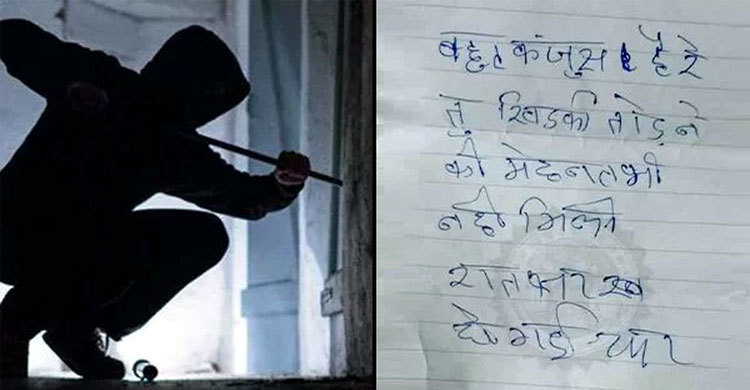 बहुत कंजुस है रे
तु खिडकी तोड़ने
की मेहनत भी
नही मिली
रात भर ख
हो गई यार